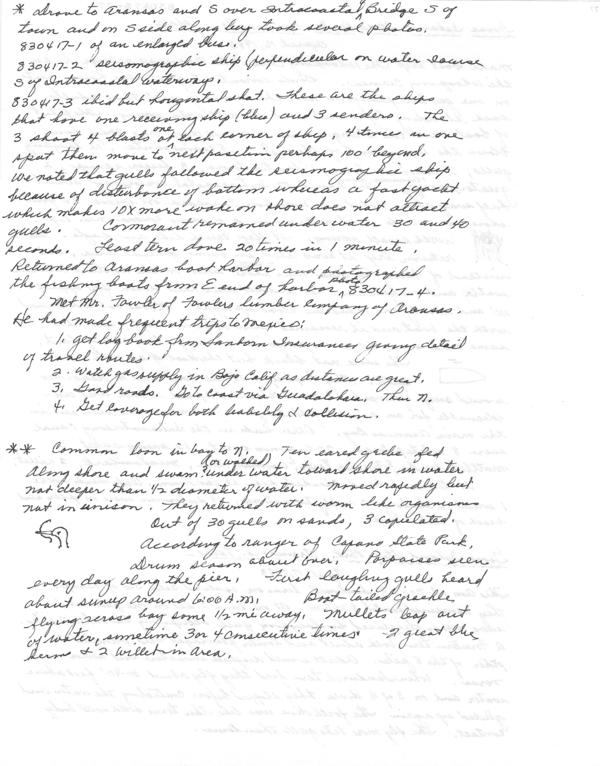 * Drove to Aransas and S over Intracoastal Bridge S of
town and on S side along bay took several photos.
830417-1 of an enlarged
830417-2 seismographic ship (perpendicular on water course
S of Intracoastal waterway.
830417-3 ibid but horizontal shot. These are the ships
that have one receiving ship (blue) and 3 senders. The
3 shoot 4 blasts one at each corner of ship, 4 times in one
spot then move to next position perhaps 100' beyond.
We noted that gulls followed the seismographic ship
because of disturbance of bottom whereas a fast yacht
which makes 10X more wake on shore does not attract
gulls. Cormorant remained under water 30 and 40
seconds. Least tern dove 20 times in 1 minute.
Returned to Aransas boat harbor and photographed
the fishing boats from E end of harbor, photo 830417-4.
Met Mr. Fowler of Fowlers lumber Company of Aransas.
He had made frequent trips to Mexico:
1. get log book from Sanborn Insurances giving detail
of travel routes.
2. Watch gas supply in Baja Calif as distances are great.
3. Good roads. Go to coast via Guadalahara. Then N.
4. Get coverage for both liability & collision.
** Common loon in bay to N. Ten eared grebe fed
along shore and swam (or walked) under water toward shore in water
not deeper than 1/2 diameter of water. Moved rapidly but
not in unison. They returned with worm like organisms
Out of 30 gulls on sands, 3 copulated.
According to ranger of Copano State Park,
Drum season about over. Porpoises seen
every day along the pier. First laughing gulls heard
about sunup around 6:00 A.M. Boat-tailed grackle
flying across bay some 1/2 mi away. Mullets leap out
of water, sometime 3 or 4 consecutive times. -2 great blue
herns & 2 willet in area.